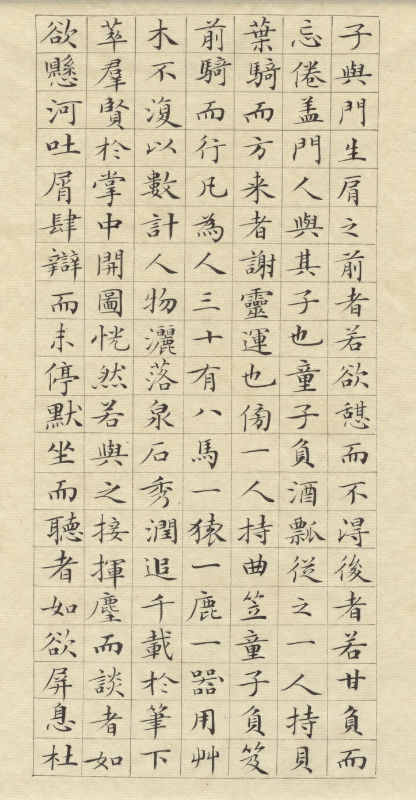 子與門生肩之前者若欲憩而不得後者若甘負而
忘倦盖門人與其子也童子負酒瓢從之一人持貝
葉騎而方来者謝靈運也傍一人持曲笠童子負笈
前騎而行凡為人三十有八馬一猿一鹿一器用艸
木不復以數計人物灑落泉石秀潤追千載於筆下
萃羣賢於掌中開圖恍然若與之接揮麈而談者如
欲懸河吐屑肆辯而未停默坐而聽者如欲屏息杜